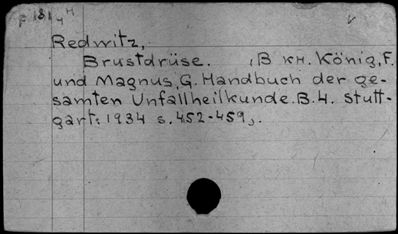 Redwitz,
Brustdrüse. , B кн. König, F.
und Magnus, G. Handbuch der ge-
samten Unfallheilkunde. B. 4. Stutt-
gart: 1934 s. 452-459,.